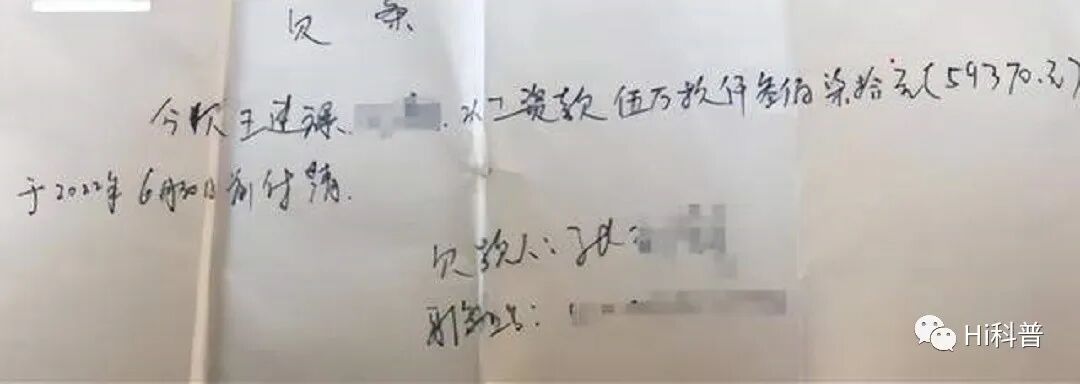 欠 条
今欠王连录 人工资款伍万玖仟叁佰柒拾元(59370.元)
于2022年6月30日前付清.
欠款人:张
身份证号:
Hi科普